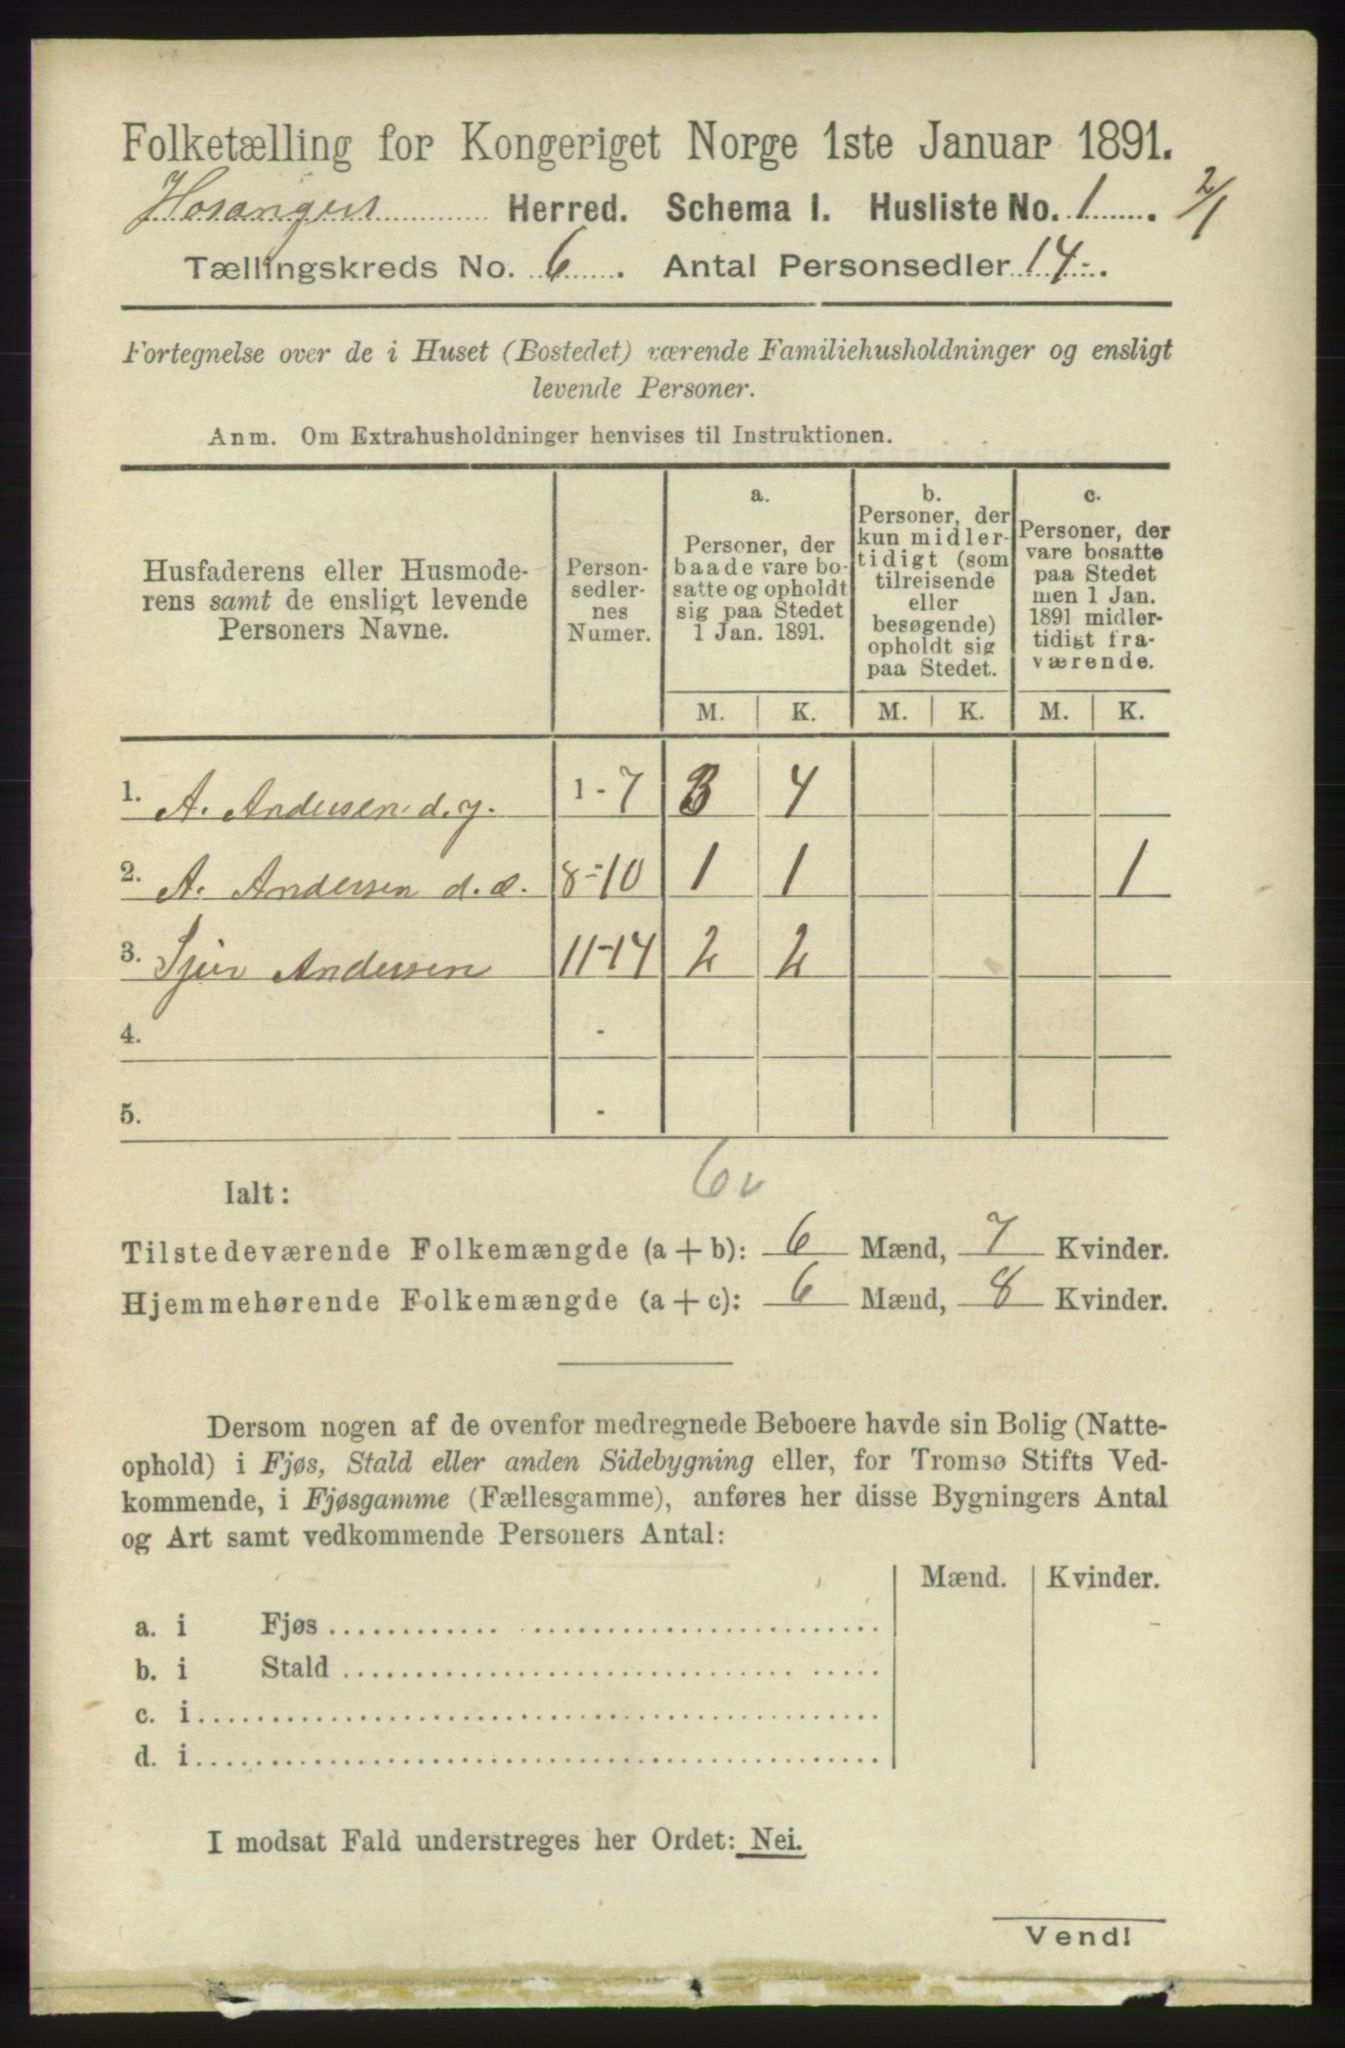 Folketælling for Kongeriget Norge 1ste Januar 1891.
Hosangers Herred. Schema I. Husliste No. 1. 2/1
Tællingskreds No. 6. Antal Personsedler 14-.
Fortegnelse over de i Huset (Bostedet) værende Familiehusholdninger og ensligt
levende Personer.
Anm. Om Extrahusholdninger henvises til Instruktionen.
Husfaderens eller Husmode-
rens samt de ensligt levende
Personers Navne.
Person-
sedler-
nes
Numer.
a.
Personer, der
baade vare bo-
satte og opholdt
sig paa Stedet
1 Jan. 1891.
b.
Personer, der
kun midler-
tidigt (som
tilreisende
eller
besøgende)
opholdt sig
paa Stedet.
c.
Personer, der
vare bosatte
paa Stedet
men 1 Jan.
1891 midler-
tidigt fra-
værende.
M. K. M. K. M. K.
1. A. Andersen d. y. 1 - 7 3 4
2. A. Andersen d. æ. 8-10 1 1 1
3. Sjur Andersen 11-14 2 2
4. -
5. -
Ialt:
Tilstedeværende Folkemængde (a + b): 6 Mænd, 7 Kvinder.
Hjemmehørende Folkemængde (a + c): 6 Mænd, 8 Kvinder.
Dersom nogen af de ovenfor medregnede Beboere havde sin Bolig (Natte-
ophold) i Fjøs, Stald eller anden Sidebygning eller, for Tromsø Stifts Ved-
kommende, i Fjøsgamme (Fællesgamme), anføres her disse Bygningers Antal
og Art samt vedkommende Personers Antal:
Mænd. Kvinder.
a. i Fjøs
b. i Stald
c. i
d. i
I modsat Fald understreges her Ordet: Nei.
Vend!